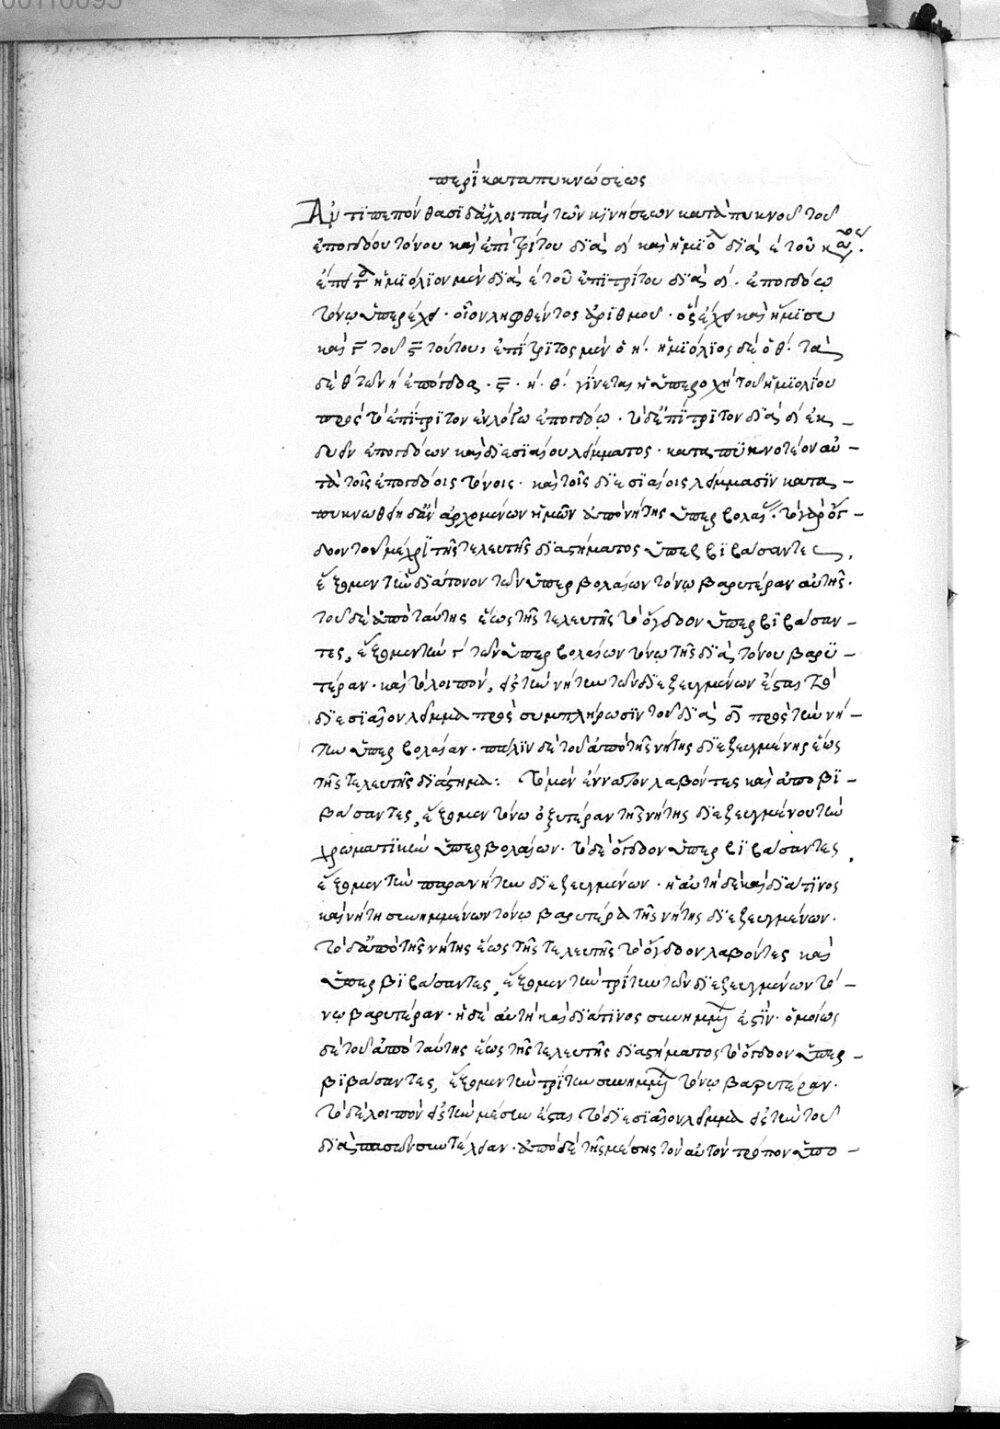 περὶ καταπυκνώσεως
Ἀντιπεπόνθασι δ' ἀλλοι πὰς τῶν κινήσεων κατὰ πυκνοῦ τοῦ
ἐπογδόου τόνου καὶ ἐπιτρίτου διὰ δ' καὶ ἡμιο διὰ ε τοῦ
ἡμιόλιον μὲν διὰ ε τοῦ ἐπιτρίτου διὰ δ'. ἐπογδόῳ
τόνῳ ὑπερέχει. οἷον ληφθέντος ἀριθμοῦ. ὃς ἔχει καὶ ἥμισυ
καὶ γ τοῦ ϛ τούτου, ἐπίτριτος μὲν ὁ η. ἡμιόλιος δὲ ὁ θ. τὰ
δὲ θ τῶν η ἐπόγδοα. ϛ. η. θ. γίνεται ἡ ὑπεροχὴ τοῦ ἡμιολίου
πρὸς τὸ ἐπίτριτον ἐν λόγῳ ἐπογδόῳ. τὸ δ' ἐπίτριτον διὰ δ' ἐκ
δυεῖν ἐπογδόων καὶ διεσιαίου λείμματος. καταπυκνοτέον αὐ-
τὰ τοῖς ἐπογδόοις τόνοις. καὶ τοῖς διεσιαίοις λείμμασιν κατα-
πυκνωθείη δ' ἂν ἀρχομένων ἡμῶν ἀπὸ νήτης ὑπερβολαί. τὸ γὰρ ὄγ-
δοον τοῦ μέχρι τῆς τελευτῆς διαστήματος ὑπερβιβάσαντες,
ἕξομεν τὴν διάτονον τῶν ὑπερβολαίων τόνῳ βαρυτέραν αὐτῆς.
τοῦ δὲ ἀπὸ ταύτης ἕως τῆς τελευτῆς τὸ ὄγδοον ὑπερβιβάσαν-
τες, ἕξομεν τὴν γ τῶν ὑπερβολαίων τόνῳ τῆς διατόνου βαρυ-
τέραν. καὶ τὸ λοιπὸν, εἰς τὴν νήτην τῶν διεζευγμένων ἔσται τὸ
διεσιαῖον λεῖμμα πρὸς συμπλήρωσιν τοῦ διὰ δ πρὸς τὴν νή-
την ὑπερβολαίαν. πάλιν δὲ τοῦ ἀπὸ τῆς νήτης διεζευγμένης ἕως
τῆς τελευτῆς διάστημα: τὸ μὲν ἔννατον λαβόντες καὶ ἀποβι-
βάσαντες, ἕξομεν τόνῳ ὀξυτέραν τῆς νήτης διεζευγμένου τὴν
χρωματικὴν ὑπερβολαίων. τὸ δὲ ὄγδοον ὑπερβιβάσαντες,
ἕξομεν τὴν παρανήτην διεζευγμένων. ἡ αὐτὴ δὲ καὶ διάτινος
καὶ νήτη συνημμένων τόνῳ βαρυτέρα τῆς νήτης διεζευγμένων.
τὸ δ' ἀπὸ τῆς νήτης ἕως τῆς τελευτῆς τὸ ὄγδοον λαβόντες καὶ
ὑπερβιβάσαντες, ἕξομεν τὴν τρίτην τῶν διεζευγμένων τό-
νῳ βαρυτέραν. ἡ δὲ αὐτὴ καὶ διάτινος συνημμ ἐστίν. ὁμοίως
δὲ τοῦ ἀπὸ ταύτης ἕως τῆς τελευτῆς διαστήματος τὸ ὄγδοον ὑπερ-
βιβάσαντες, ἕξομεν τὴν τρίτην συνημμ τόνῳ βαρυτέραν.
τὸ δὲ λοιπὸν εἰς τὴν μέσην ἔσται τὸ διεσιαῖον λεῖμμα εἰς τὴν τοῦ
διὰ πασῶν συντέλειαν. ἀπὸ δὲ τῆς μέσης τὸν αὐτὸν τρόπον ὑπο-